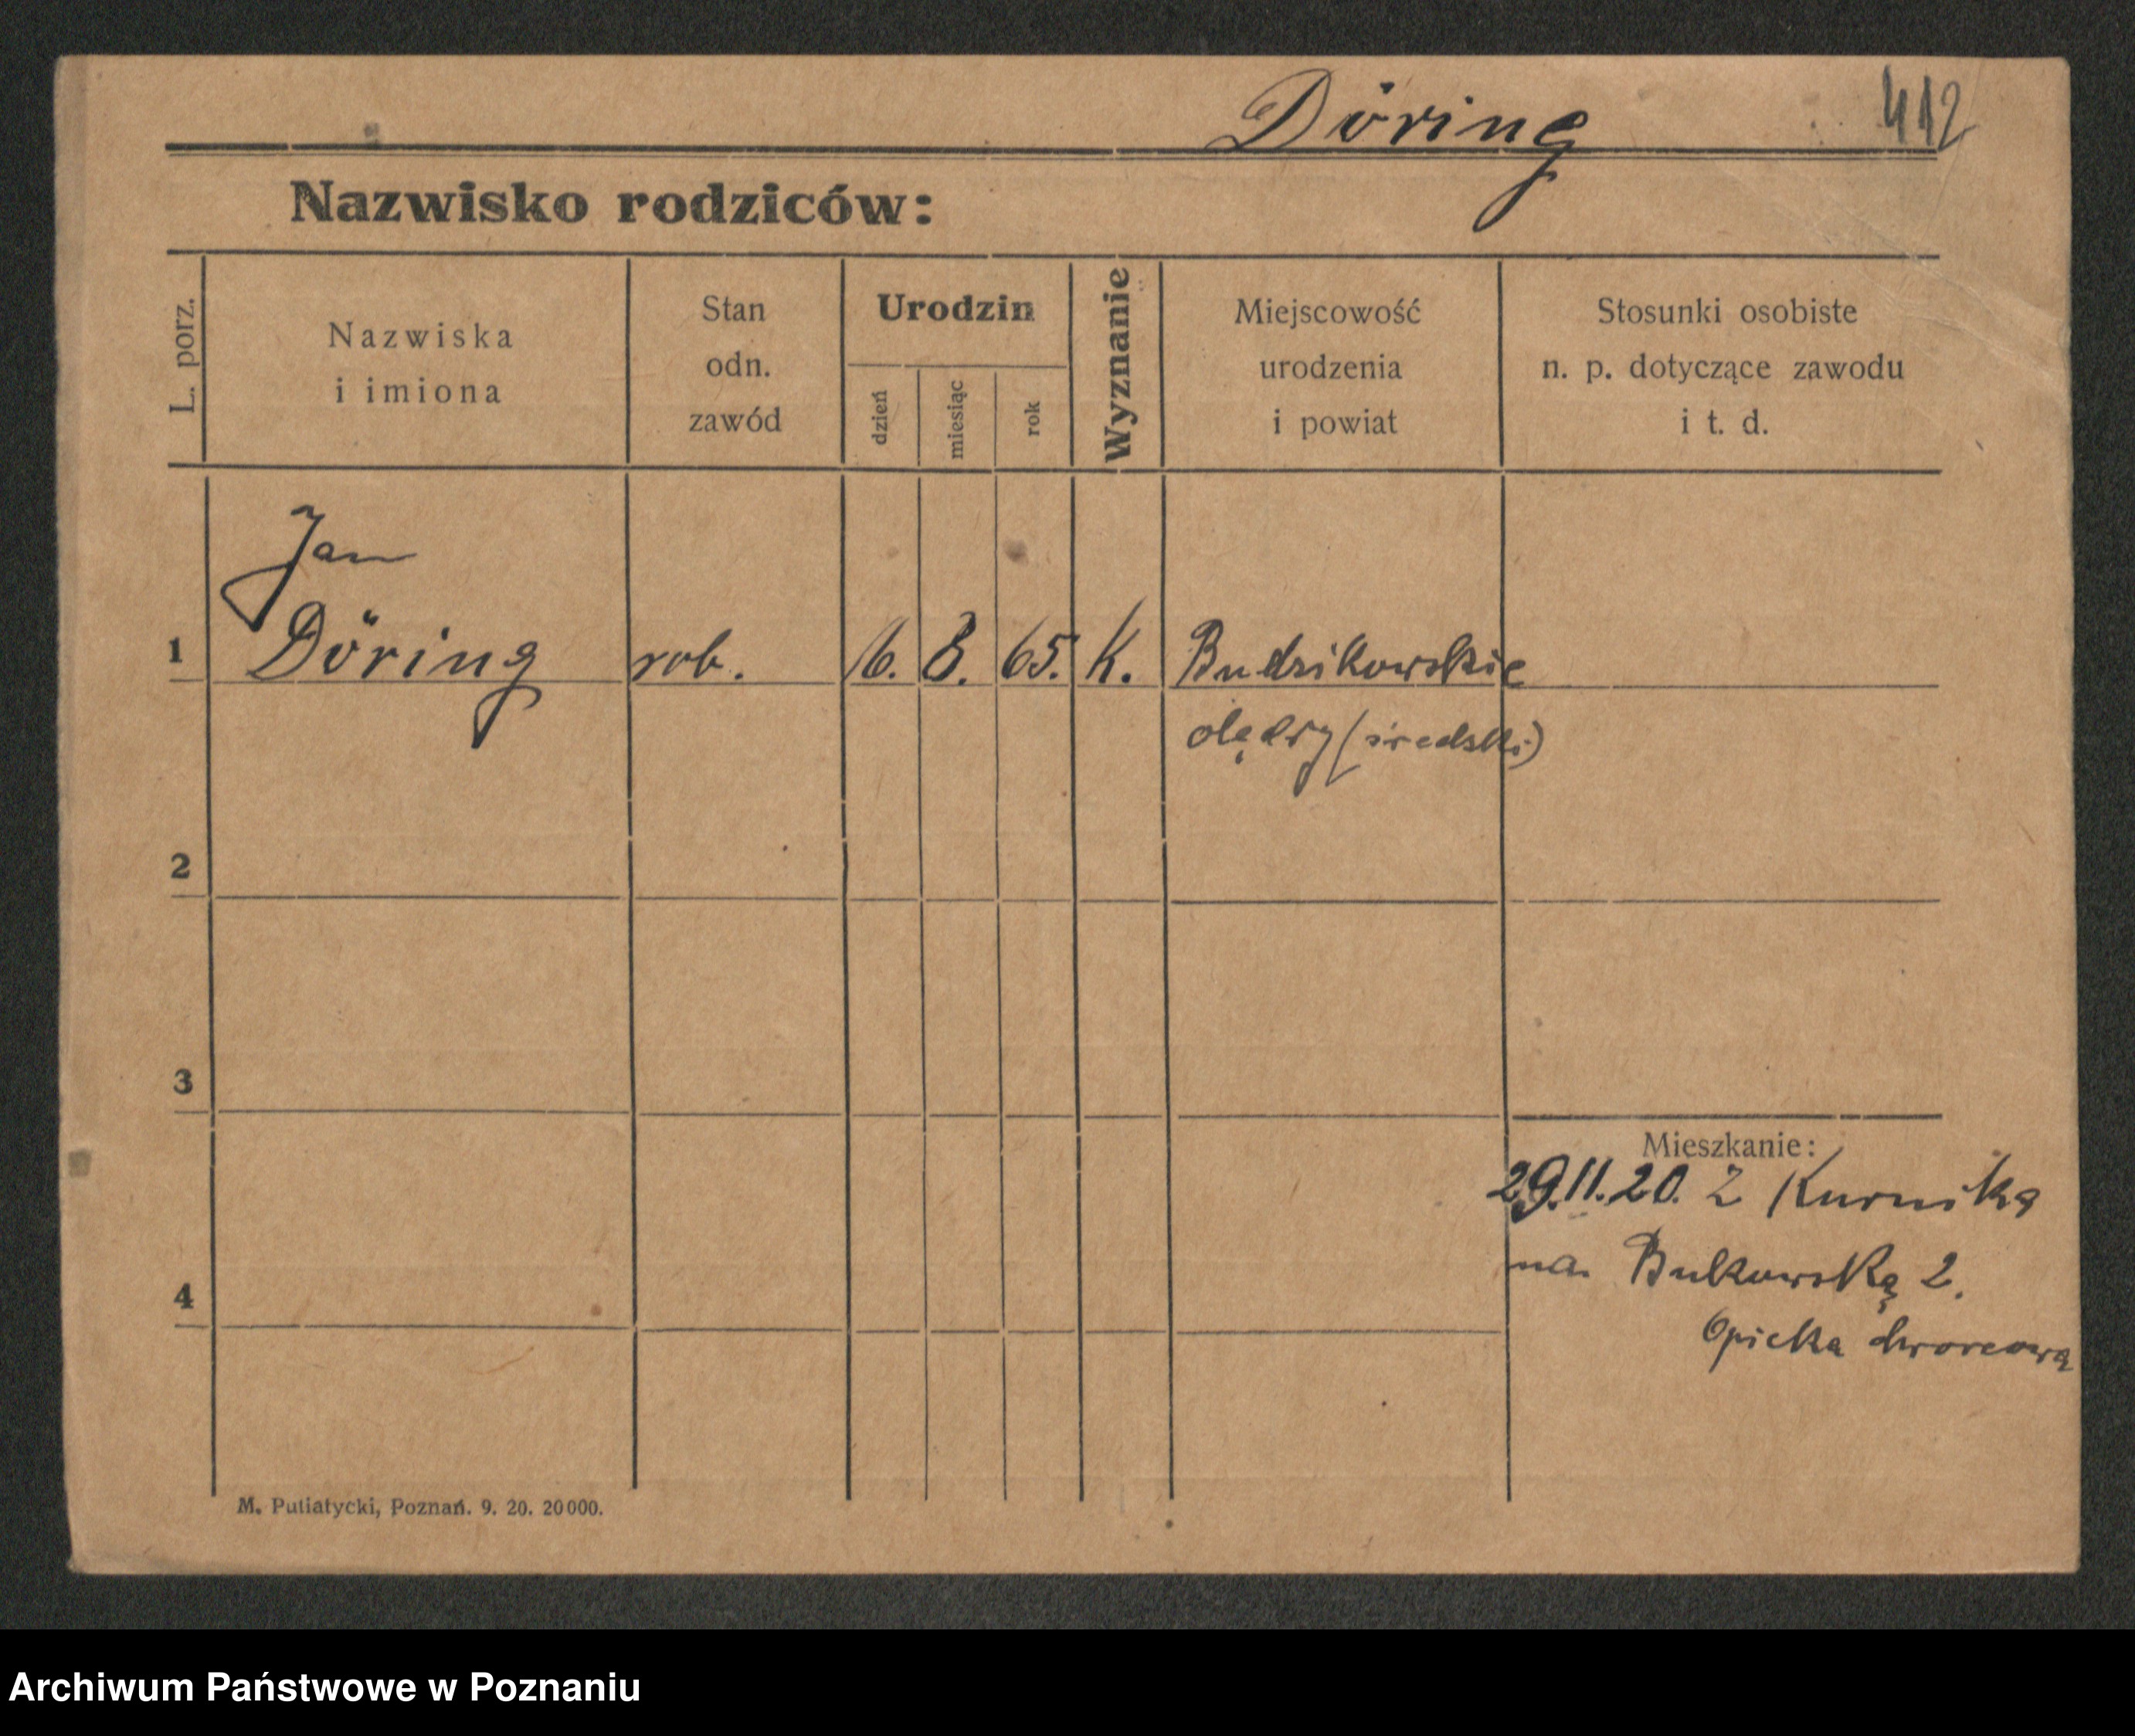 Döring 412
Nazwisko rodziców:
L. porz.
Nazwiska
i imiona
Stan
odn.
zawód
Urodzin
dzień
miesiąc
rok
Wyznanie
Miejscowość
urodzenia
i powiat
Stosunki osobiste
n. p. dotyczące zawodu
i t. d.
Jan
1 Döring rob. 16. 8. 65. K. Budzikowskie
olędry (średski)
2
3
Mieszkanie:
29.11.20. z Kurnika
na Bukowską 2.
4
Opieka dworcowa
M. Putiatycki, Poznań. 9. 20. 20000.
Archiwum Państwowe w Poznaniu